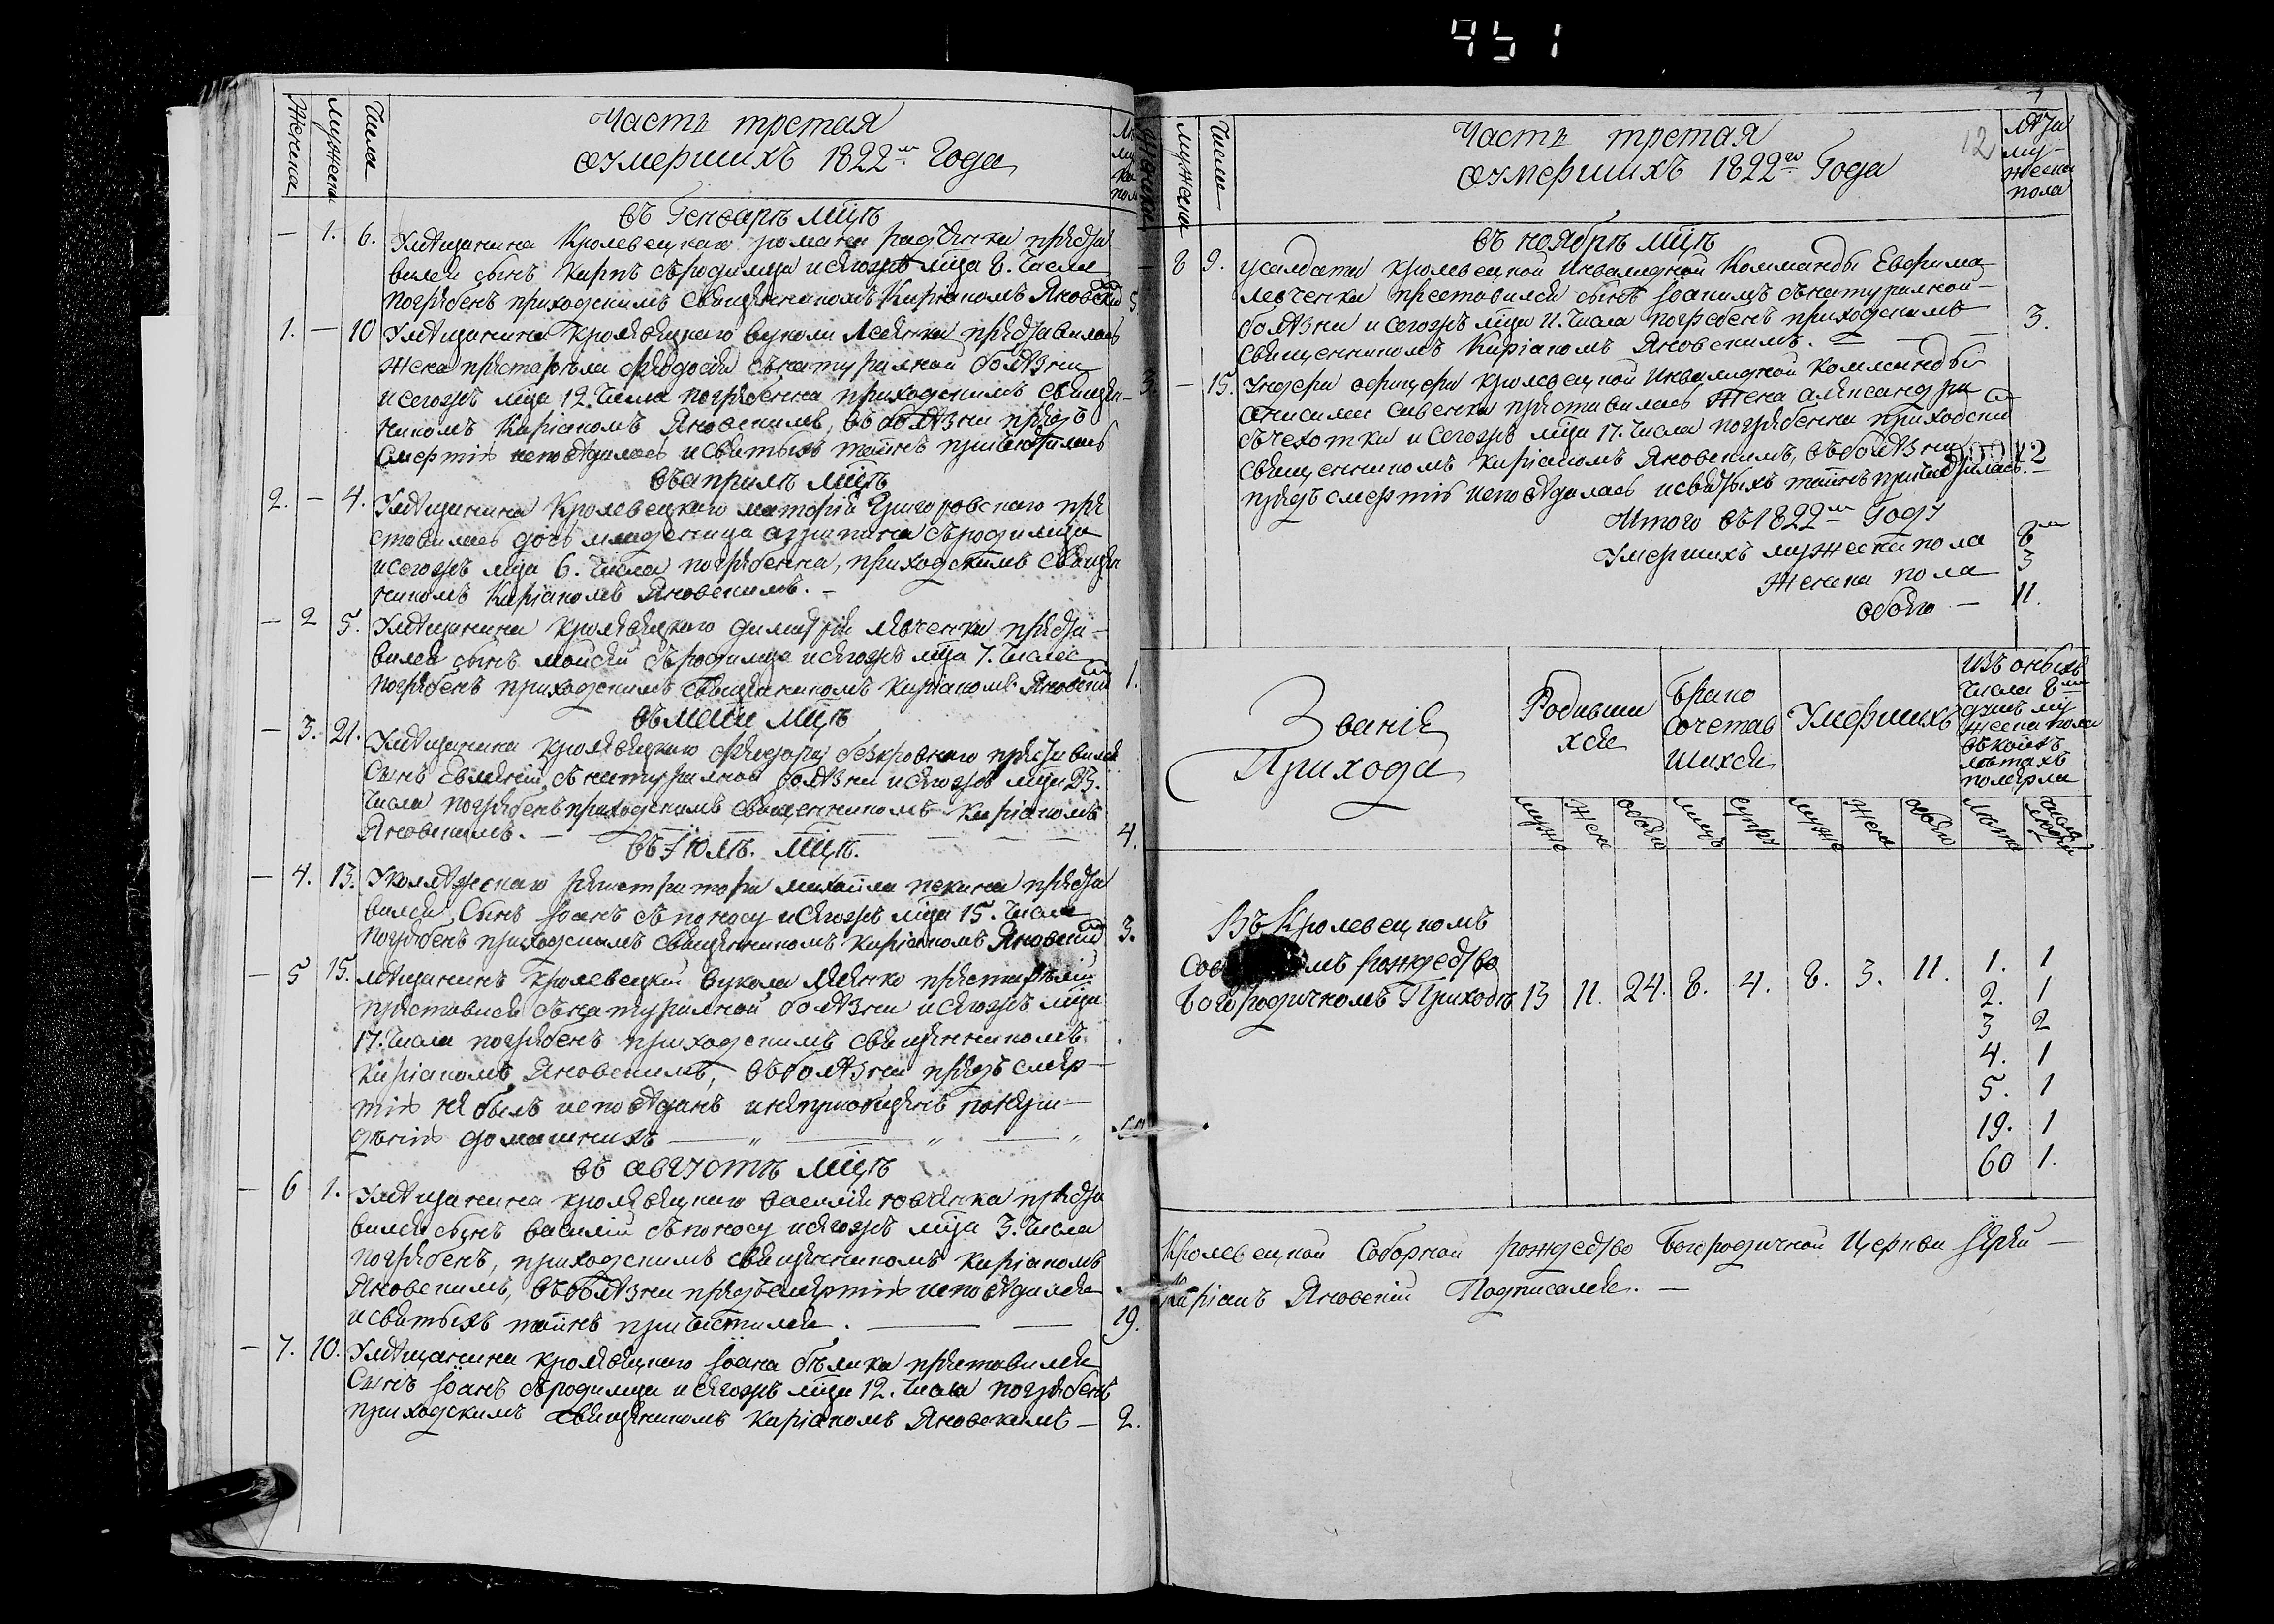 451
Женска
Мужеска
Числа
Часть третая
оумершихъ 1822го Года
въ Генваръ мцъ
1. 6. Умѣщанина Кролевецкаго романа радченка преста
вился сынъ Карпъ съ родимца исегожъ мца 8. Числа
погребенъ приходскимъ священникомъ Киріакомъ Яновским 5
1. 10 Умѣщанина Кролевецкаго вуколи преставилась
жена престарѣла Феодосія сънатуралной болѣзни
исегожъ мца 12. Числа погребенна приходскимъ священ-
никомъ Киріакомъ Яновскимъ, въ болѣзни предъ
смертію исповѣдалась исвятыхъ таинъ пріобщилась
въ априлѣ мцъ
2. 4. Умѣщанина Кролевецкаго матфія Григоровского пре
ставилась дочь младеница агрипина съродимца
исегожъ мца 6. Числа погребенна, приходскимъ священ
никомъ Киріакомъ Яновскимъ.
2 5. Умѣщанина кролевецкого димитрія левченка преста-
вился сынъ моисей съродимца исегожъ мца 7. Числа
погребенъ приходскимъ священникомъ Киріакомъ Яновским 1.
въ маіи мцъ
3. 21. Умѣщанина Кролевецкаго Феодора безкровного преставился
Сынъ Евменій, сънатуралной болѣзни исегожъ мца 23.
Числа погребенъ приходскимъ священникомъ Киріакомъ
Яновскимъ. 4.
въ Іюлѣ. мцъ.
4. 13. Уколлѣжскаго регистратора михаила пекина преста
вился Сынъ Іоанъ съ поносу исегожъ мца 15. Числа
погребенъ приходскимъ священникомъ Киріакомъ Яновским 3.
5 15. мѣщанинъ Кролевецкій вукола престарѣлій
преставися сънатуралной болѣзни исегожъ мца
17. Числа погребенъ приходскимъ священникомъ
Киріакомъ Яновскимъ, въболѣзни предъ смер-
тію не былъ исповѣданъ инепріобщенъ понера-
дѣнію домашнихъ
въ августѣ мцъ
6 1. Умѣщанина кролевецкаго василія ювченка преста
вился сынъ василій съпоносу исегожъ мца 3. Числа
погребенъ, приходскимъ священникомъ Киріакомъ
Яновскимъ, въболѣзни предъсмертію исповѣдался
исвятыхъ таинъ пріобстился. 19.
7. 10. Умѣщанина кролевецкого Іоана бѣлика преставился
Сынъ Іоанъ съродимца исегожъ мца 12. Числа погребенъ
приходскимъ священникомъ Киріакомъ Яновскимъ 2.
Женска
Мужеска
Числа
Часть третая
оумершихъ 1822го Года
12
лѣта
му-
жеска
пола
въ ноябрѣ мцъ
8 9. усалдата кролевецкой Инвалидной Комманды Евфима
левченка преставился сынъ Іоакимъ сънатуралной
болѣзни и сегожъ мца 11. Числа погребенъ приходскимъ 3.
священникомъ Киріакомъ Яновскимъ.
3. 15. Ундера офицера кролевецкой Инвалидной Комманды
Анисима савенка преставилась жена александра
съчехотки и сегожъ мца 17. Числа погребенна приходским
священникомъ Киріакомъ Яновскимъ, въболѣзни
00012
предъ смертію исповѣдалась исвятыхъ таинъ пріобщилась.
Итого въ1822м Году
Умершихъ мужеска пола 8м
Женска пола 3
обоего 11.
Званіе
Прихода
Родивши
хся
Брако
сочетав
шихся
Умершихъ
Изъ оныхъ
числа 8ми
душъ му
жеска пола
въкоихъ
лѣтахъ
померли
муже
жен
обоего
лицъ
супр
муже
жен
обоего
лѣта
число
людей
Въ Кролевецкомъ
рождество
Богородичномъ Приходѣ 13 11. 24. 8. 4. 8. 3. 11.
1. 1
2. 1
3 2
4. 1
5. 1
19. 1
60 1.
Кролевецкой Соборной рождество Богородичной Церкви Іерей
Киріакъ Яновскій Подписался.